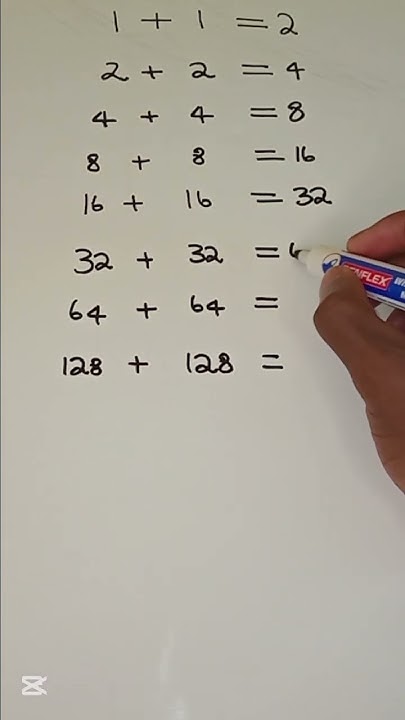 1 + 1 = 2
2 + 2 = 4
4 + 4 = 8
8 + 8 = 16
16 + 16 = 32
32 + 32 =
64 + 64 =
128 + 128 =